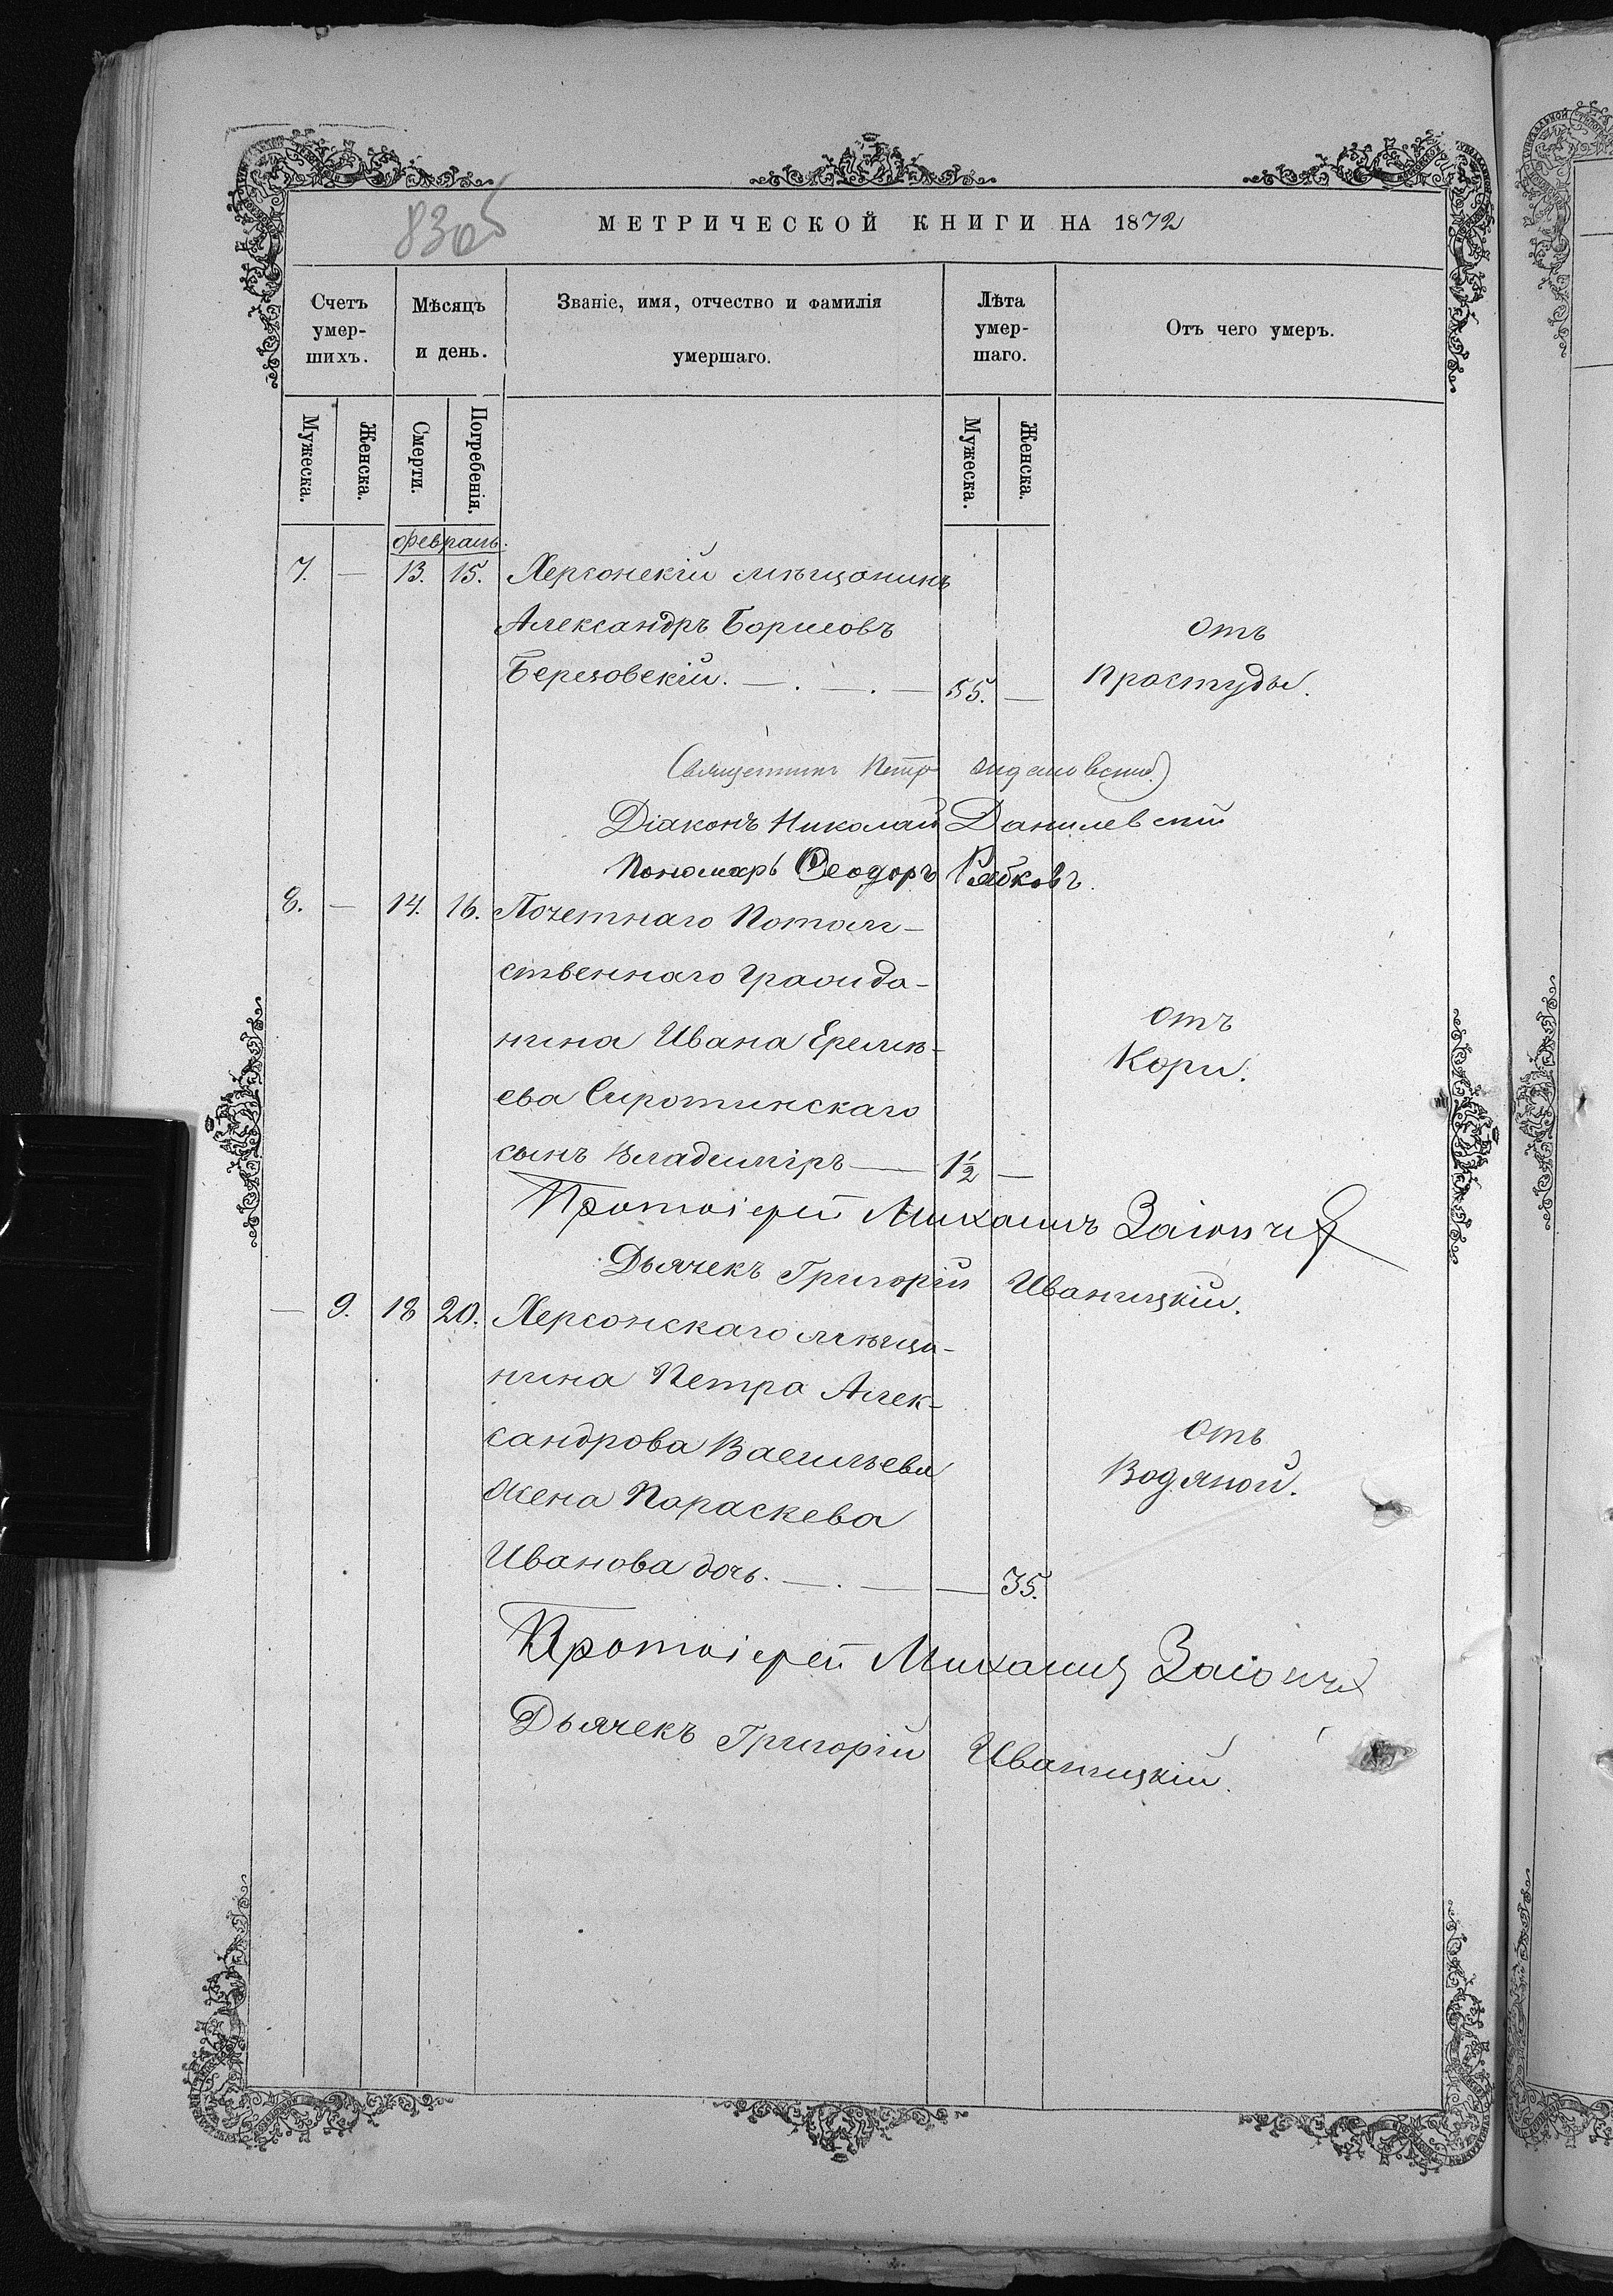 830б
МЕТРИЧЕСКОЙ КНИГИ НА 1872
Счетъ умер-шихъ.
Мѣсяцъ и день.
Званіе, имя, отчество и фамилія умершаго.
Лѣта умер-шаго.
Отъ чего умеръ.
Мужеска.
Женска.
Смерти.
Погребенія.
Мужеска.
Женска.
Февраль.
7. — 13. 15. Херсонскій мѣщанинъ
Александръ Борисовъ отъ
Березовскій. —. —. — 55. — простуды.
Священникъ Петръ
Діаконъ Николай Данилевскій
Пономарь Ѳеодоръ Рябковъ.
8. — 14. 16. Почетнаго Потом-
ственнаго гражда-
нина Ивана Еремѣ- отъ
ева Сиротинскаго Кори.
сынъ Владиміръ — 1½ —
Протоіерей Михаилъ
Дьячекъ Григорій Иваницкій.
— 9. 18 20. Херсонскаго мѣща-
нина Петра Алек-
сандрова Васильева отъ
жена Параскева Водяной.
Иванова дочь. —. — — 35.
Протоіерей Михаилъ
Дьячекъ Григорій Иваницкій.